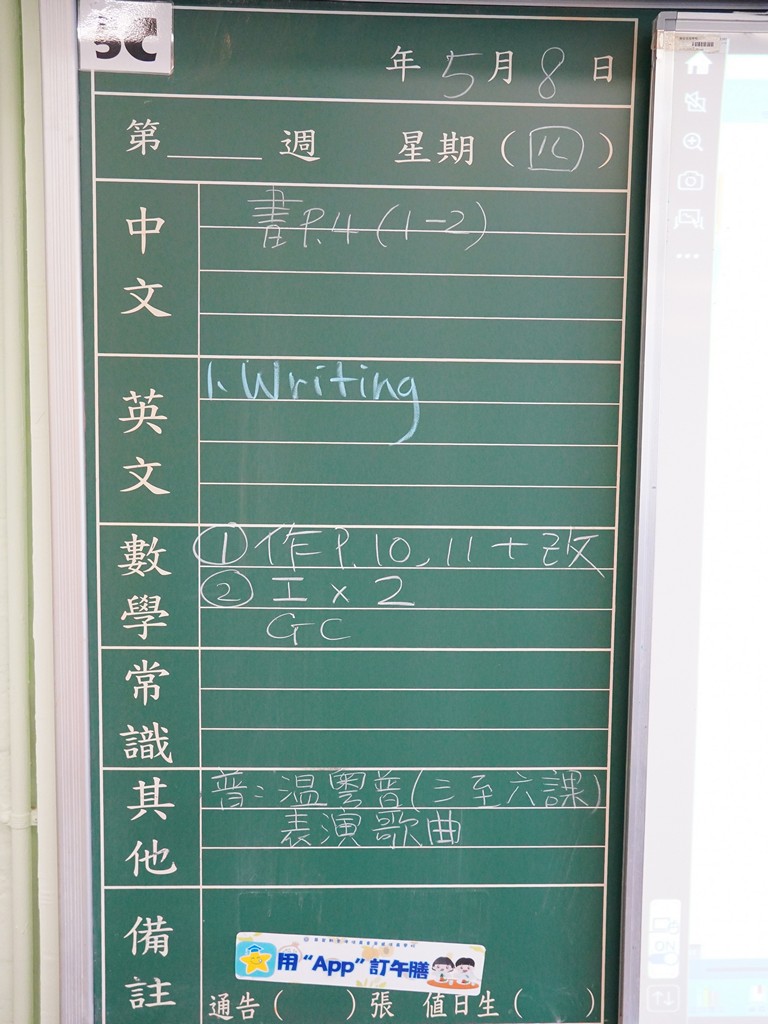 5C
年 5 月 8 日
第____週 星期（四）
中文
書 P.4 (1-2)
英文
1. Writing
數學
① 作 P. 10, 11 + 改
② I x 2
GC
常識
其他
普：温粵普(三至六課)
表演歌曲
備註
用“App”訂午膳
通告（ ）張 值日生（ ）
ON